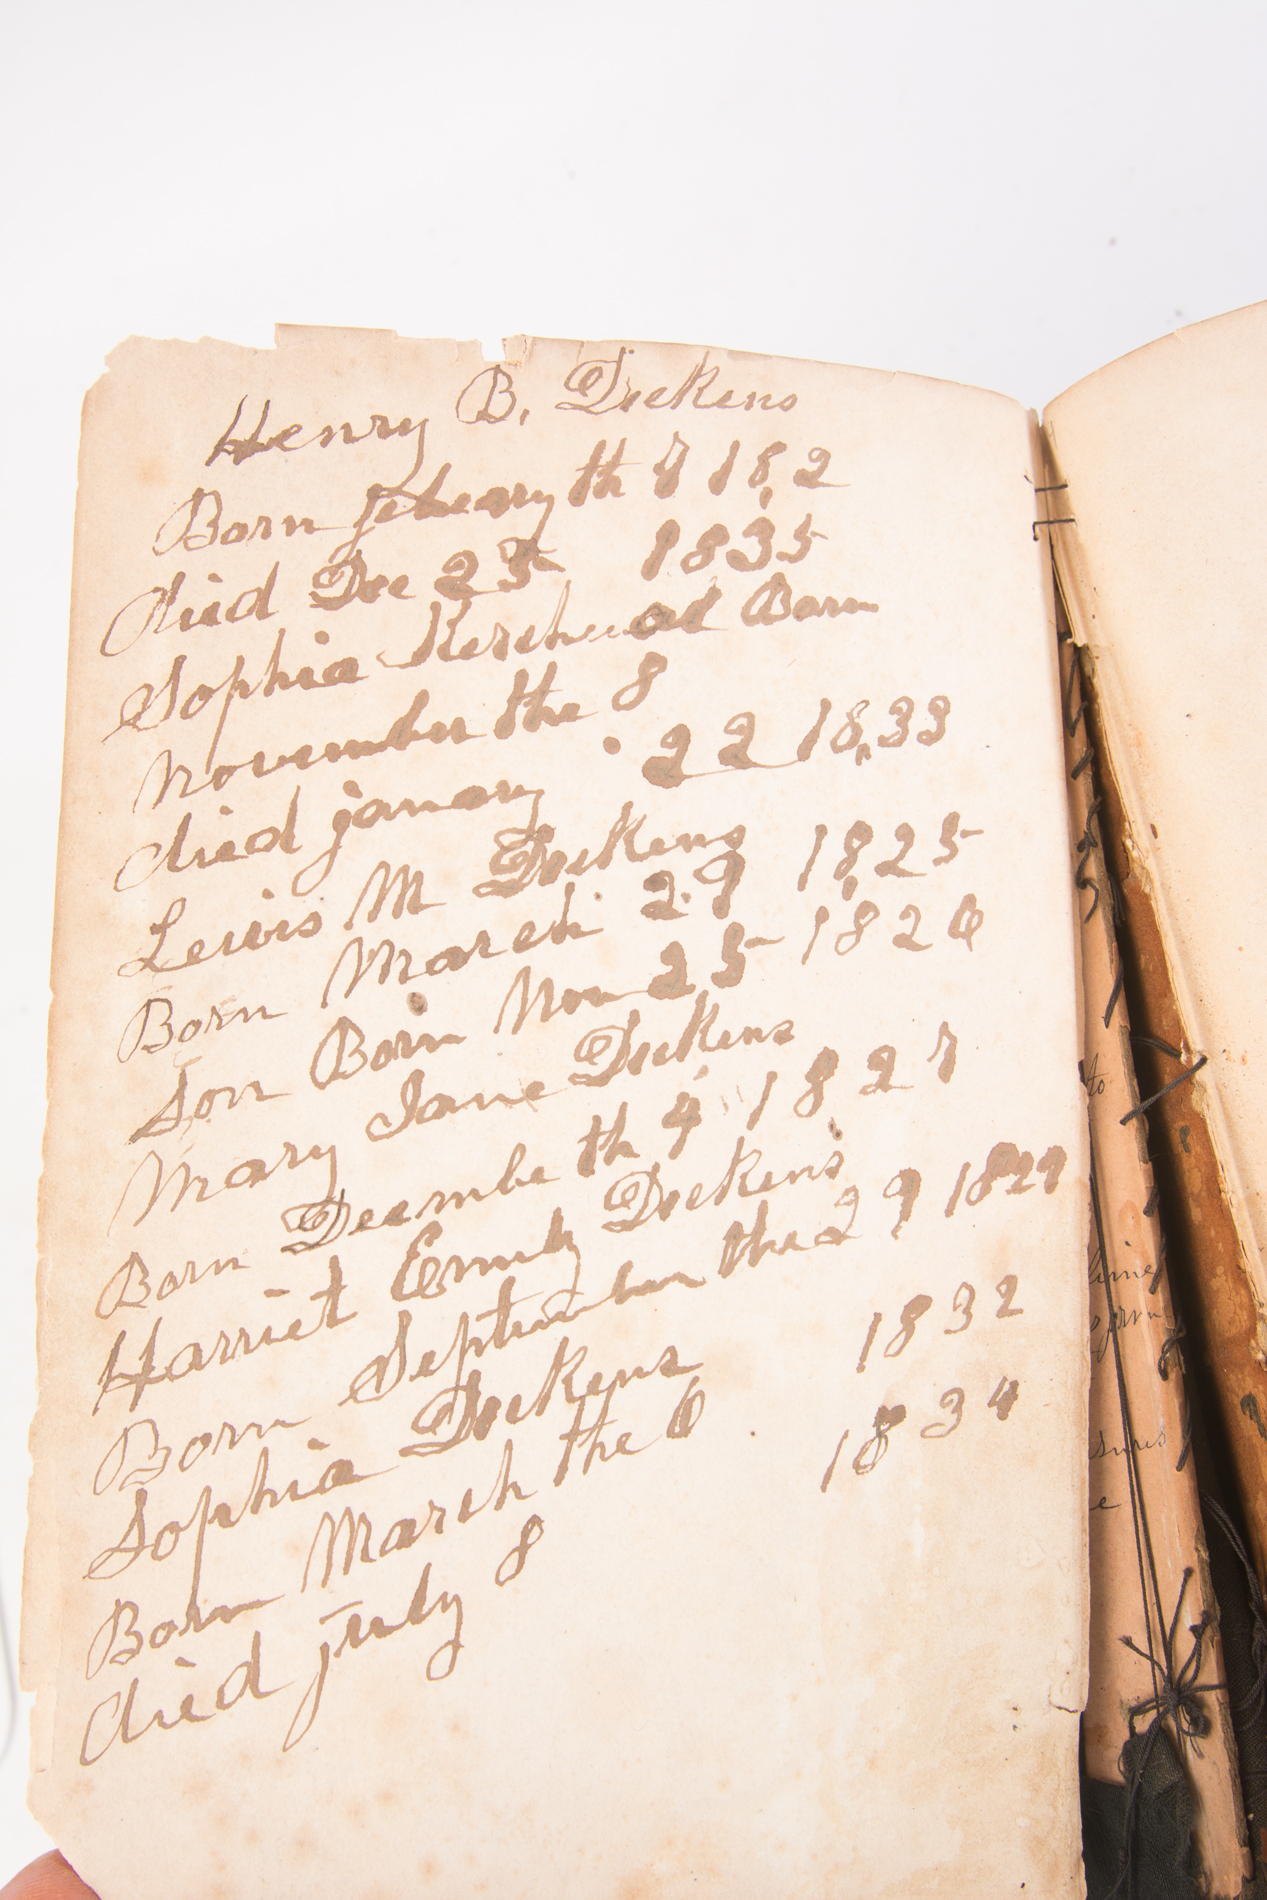 Henry B. Dickens
Born febuary th 7 18,2
died Dec 25 1835
Sophia Born
November the 8
died janary 22 18,33
Lewis M Dickens
Born March 29 18,25
Son Born Nov 25 1826
Mary Jane Dickens
Born Decembe th 4 1827
Harriet Emily Dickens
Born September the 29 1829
Sophia Dickens
Born March the 6 1832
died july 8 1834
to